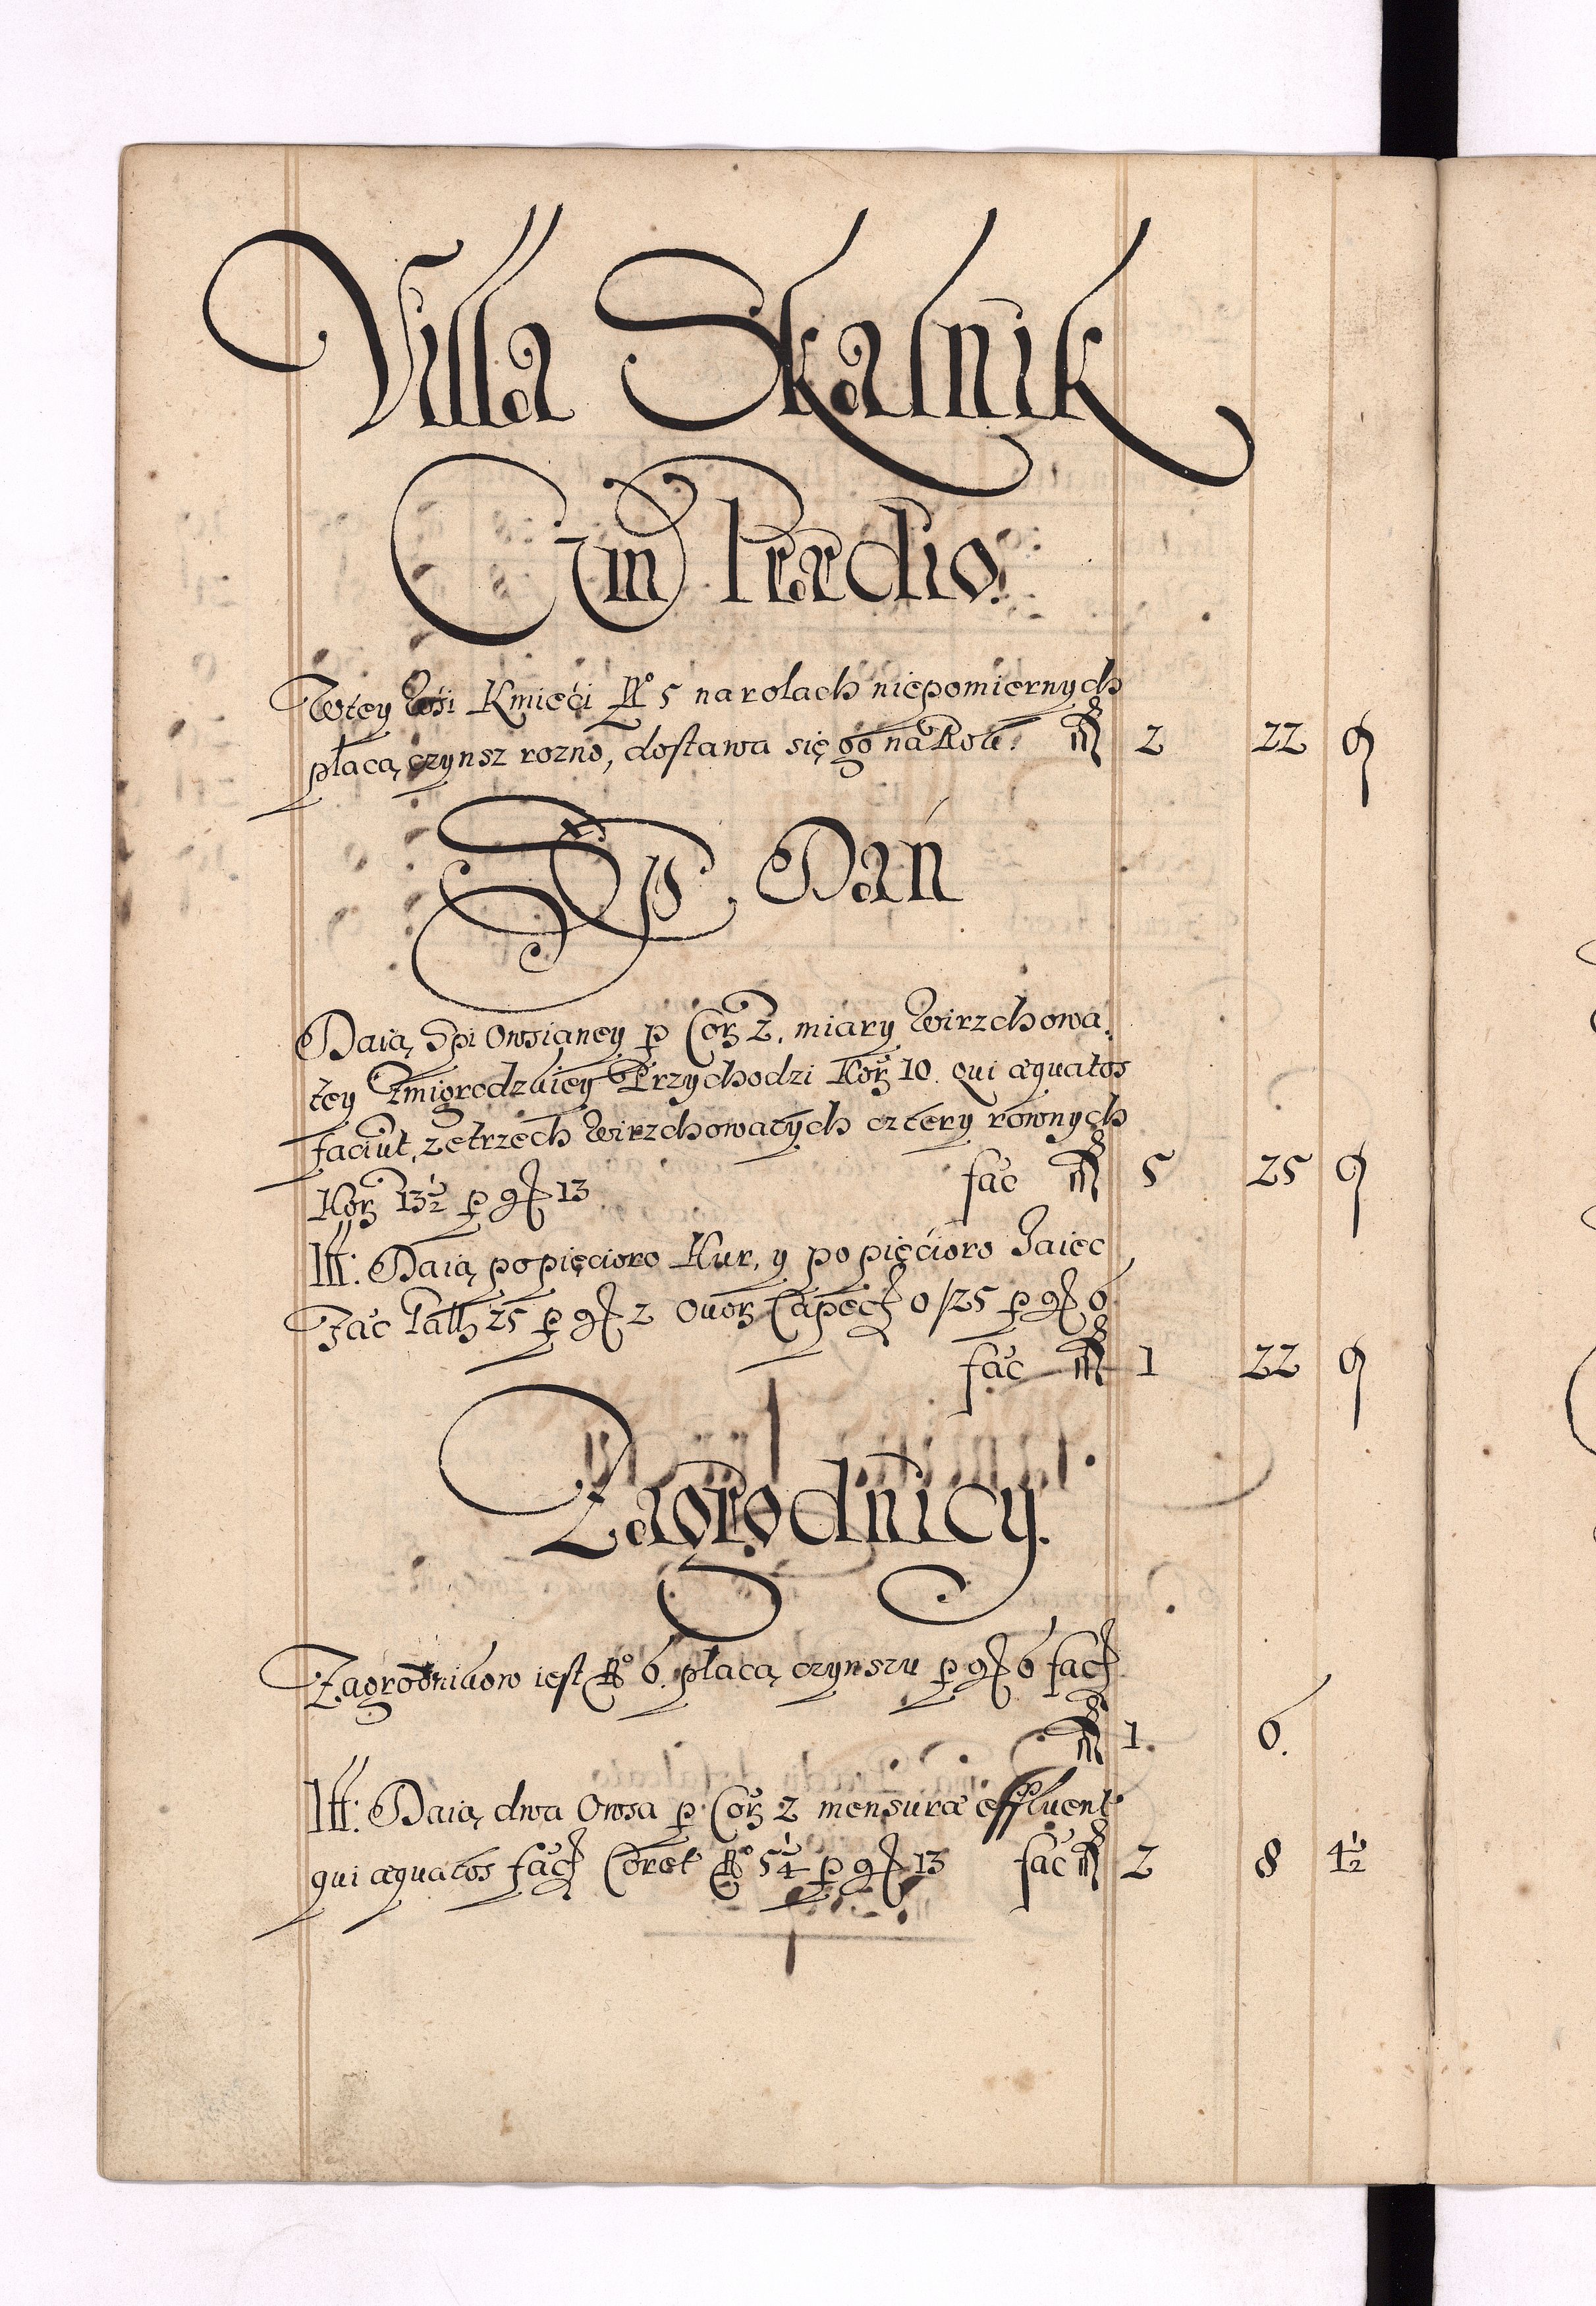 Villa Skalnik
Cum Prædio.
W tey Wsi Kmieci No 5 na rolach niepomiernych
płacą czynsz rozno, dostawa się go na Rok. 2 22 9
Dań
Daią Spi Owsianey p Cor 2. miary Wirzchowa
tey Zmigrodzkiey Przychodzi Kor 10. qui æquatos
faciut, ze trzech Wirzchowatych cztery rownych
Kor 13½ p g 13 fac 5 25 9
Itt: Daią po pięcioro Kur, y po pięcioro Jaiec
Fac 25 p g 2 Ovor 0/25 p g 6
fac 1 22 9
Zagrodnicy.
Zagrodnikow iest No 6. płacą czynszu p g 6 fac
1. 6.
Itt: Daią dwa Owsa p Cor 2 mensuræ effluent
qui æquatos fac Coret No 5¼ p g 13 fac 2 8 4½